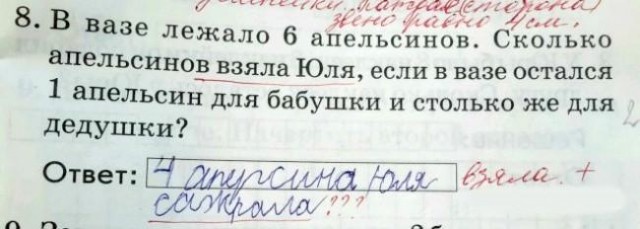 звено равно 4 см.
8. В вазе лежало 6 апельсинов. Сколько
апельсинов взяла Юля, если в вазе остался
1 апельсин для бабушки и столько же для
дедушки?
Ответ: 4 апурсина Юля взяла. +
сажрала???